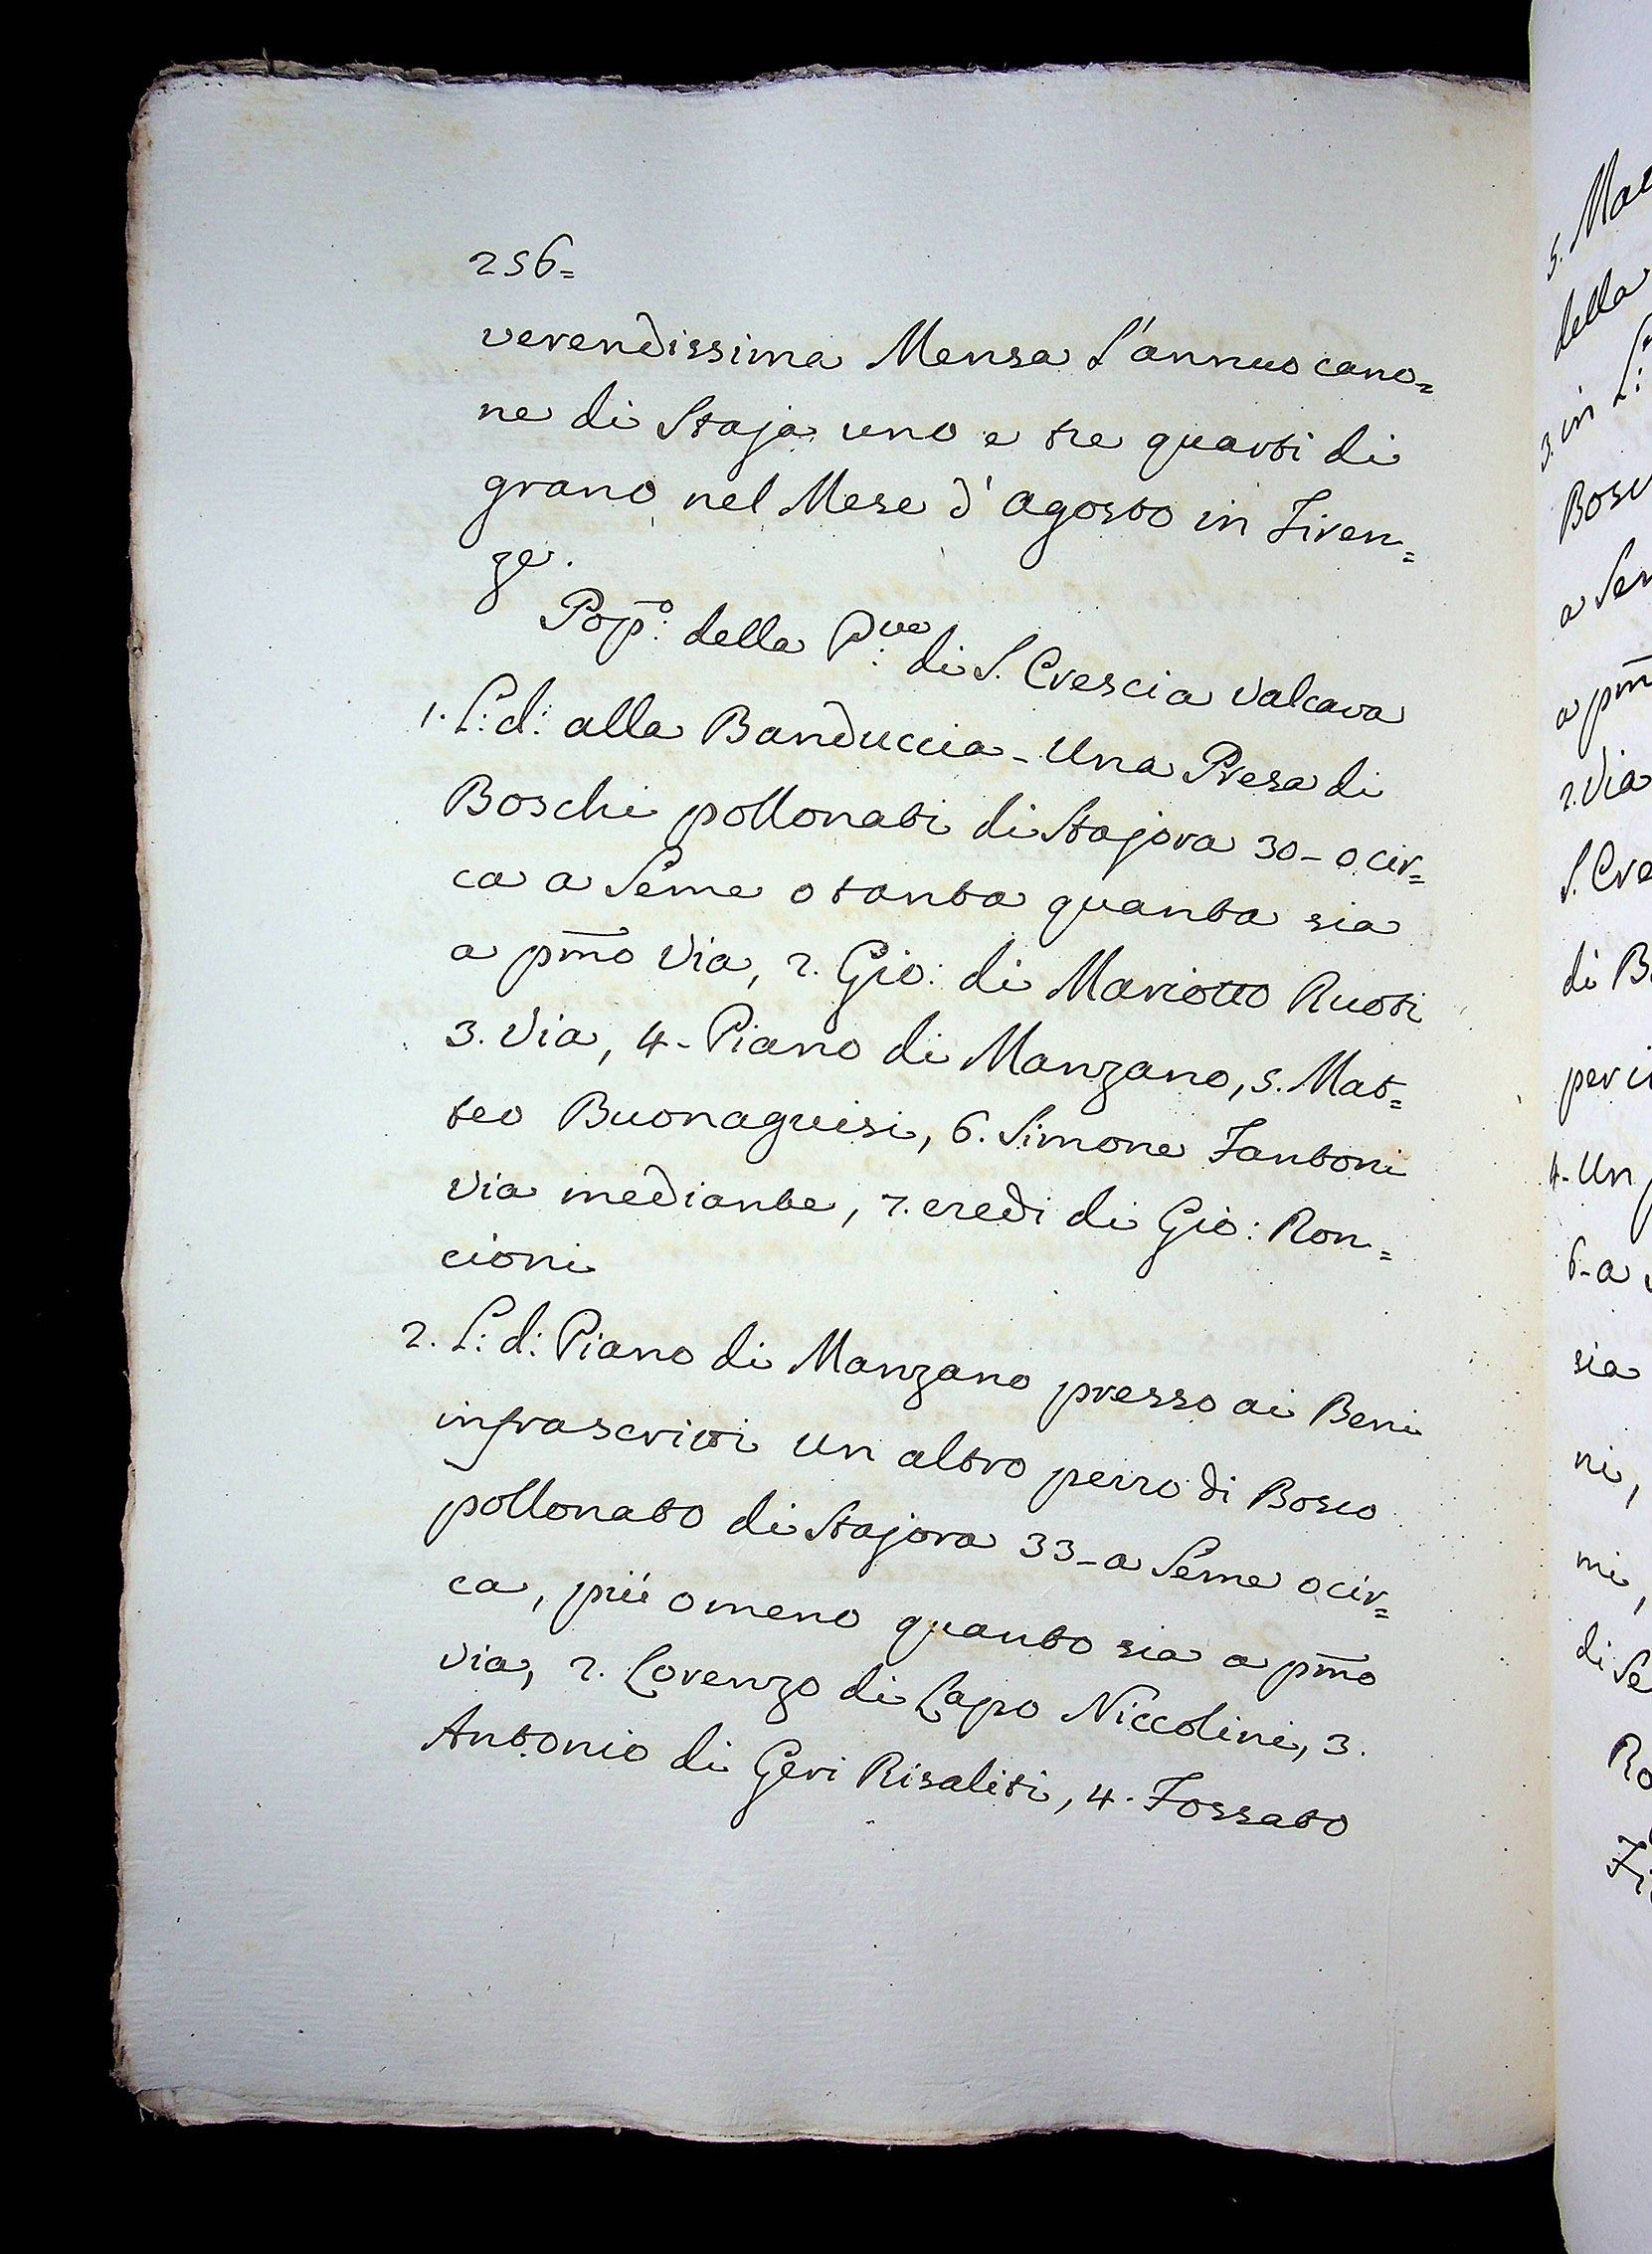 256=
verendissima Mensa l'annuo cano=
ne di Staja uno e tre quarti di
grano nel Mese d'Agosto in Firen=
ze.
Pop:o della P:ve di S. Crescia Valcava
1. L: d: alla Banduccia - Una Presa di
Boschi pollonati di Stajora 30 - o cir=
ca a Seme o tanta quanta sia
a pmo Via, 2. Gio: di Mariotto Ruoti
3. Via, 4 - Piano di Manzano, 5. Mat=
teo Buonaguisi, 6. Simone Fantoni
Via mediante, 7. eredi di Gio: Ron=
cioni
2. L: d: Piano di Manzano presso ai Beni
infrascritti un altro pezzo di Bosco
pollonato di Stajora 33 - a Seme o cir=
ca, più o meno quanto sia a pmo
Via, 2. Lorenzo di Lapo Niccolini, 3.
Antonio di Geri Risaliti, 4. Fossato
5.
della
3. in L:
a
a pm
2. Via
S. Cre
di B
per
4 - Un
6 - a
sia
ni,
mi,
di Se
Ro